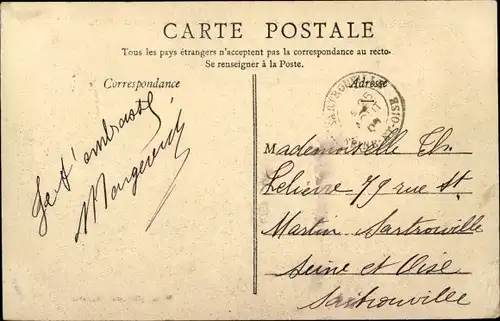 CARTE POSTALE
Tous les pays étrangers n'acceptent pas la correspondance au recto.
Se renseigner à la Poste.
Correspondance
Adresse
SARTROUVILLE
SEINE-ET-OISE
Je t'embrasse
Mademoiselle Th.
Lelievre 79 rue St
Martin Sartrouville
Seine et Oise
Sartrouville